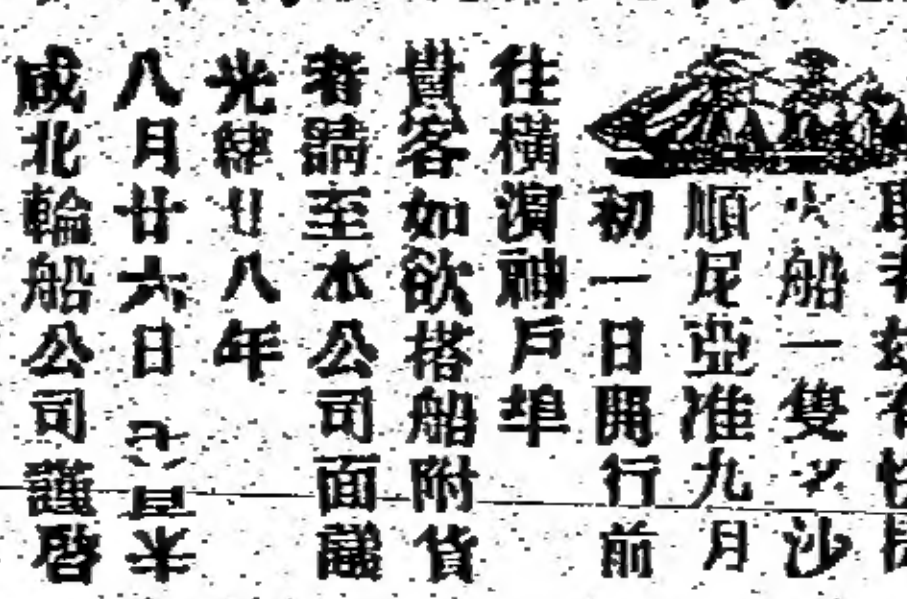 現
火船一雙名沙
順尼亞准九月
初一日開行前
往橫濱神戶埠
貴客如欲搭船附貨
者請至本公司面議
光緖廿八年
八月廿六日
咸北輪船公司謹啓